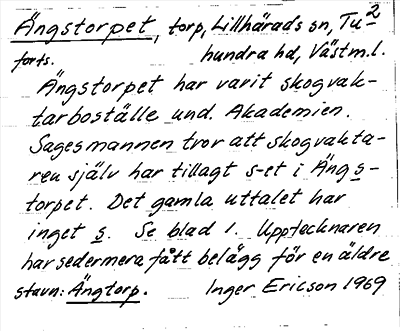 Ängstorpet, torp, Lillhärads sn, Tu- 2
forts. hundra hd, Västm.l.
Ängstorpet har varit skogvak-
tarboställe und. Akademien.
Sagesmannen tror att skogvakta-
ren själv har tillagt s-et i Ängs-
torpet. Det gamla uttalet har
inget s. Se blad 1. Upptecknaren
har sedermera fått belägg för en äldre
stavn: Ängtorp. Inger Ericson 1969